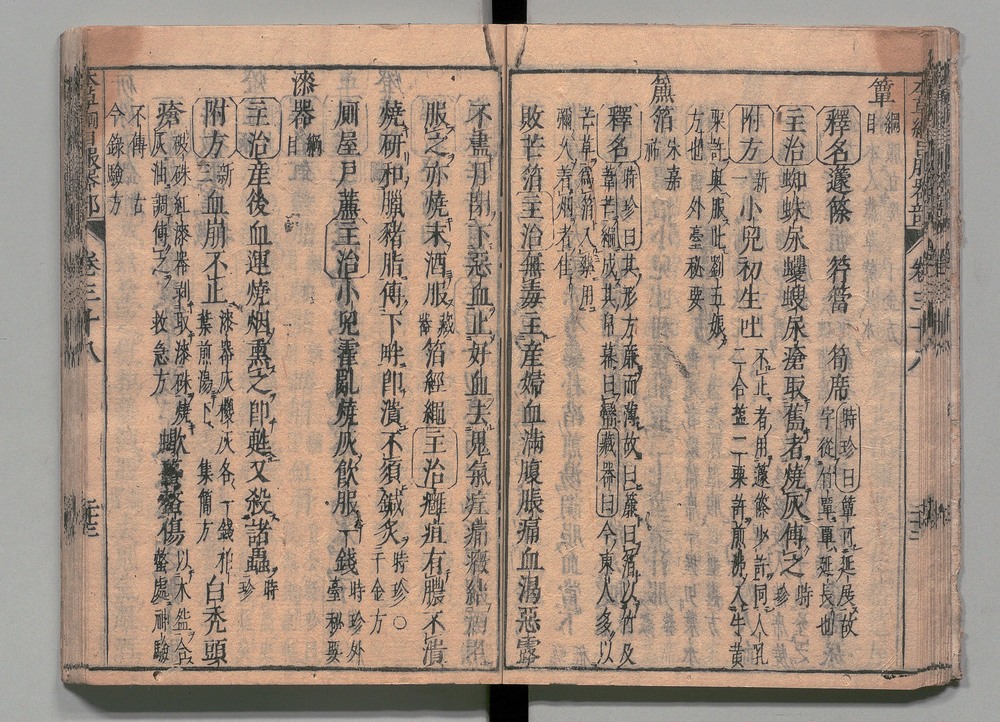 簟 綱目
釋名 籧篨 筕篖 筍席 時珍曰簟可延展故字從竹覃覃延長也
主治 蜘蛛尿蠼螋尿瘡取舊者燒灰傅之 時珍
附方 新一 小兒初生吐不止者用籧篨少許同人乳二合鹽二粟許煎沸入牛黃
粟許與服此劉五娘方也 外臺秘要
簾箔 宋嘉祐
釋名 時珍曰其形方廉而薄故曰簾曰箔以竹及
葦芒編成其帛幕曰㡘藏器曰今東人多以芒草為箔入藥用
彌久著烟者佳
敗芒箔 主治 無毒主產婦血滿腹脹痛血渴惡露
不盡月閉下惡血止好血去鬼氣疰痛癥結酒煑
服之亦燒末酒服 藏器 箔經繩 主治 癰疽有膿不潰
燒研和臘豬脂傅下畔即潰不須鍼灸 時珍○千金方
廁屋戶簾 主治 小兒霍亂燒灰飲服一錢 時珍外臺秘要
漆器 綱目
主治 產後血運燒烟熏之即甦又殺諸蟲 時珍
附方 新三 血崩不止 漆器灰椶灰各一錢柏葉煎湯下 集簡方 白禿頭
瘡 破硃紅漆器剥取漆硃燒灰油調傅之 救急方 蠍蠆螫傷 以木盌合螫處神驗
不傳 右今錄驗方
卷三十八